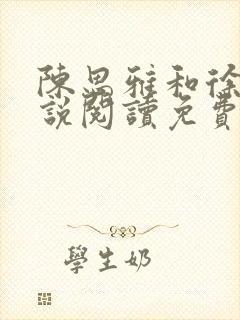 陳思雅和徐
說閱讀免費
學生奶